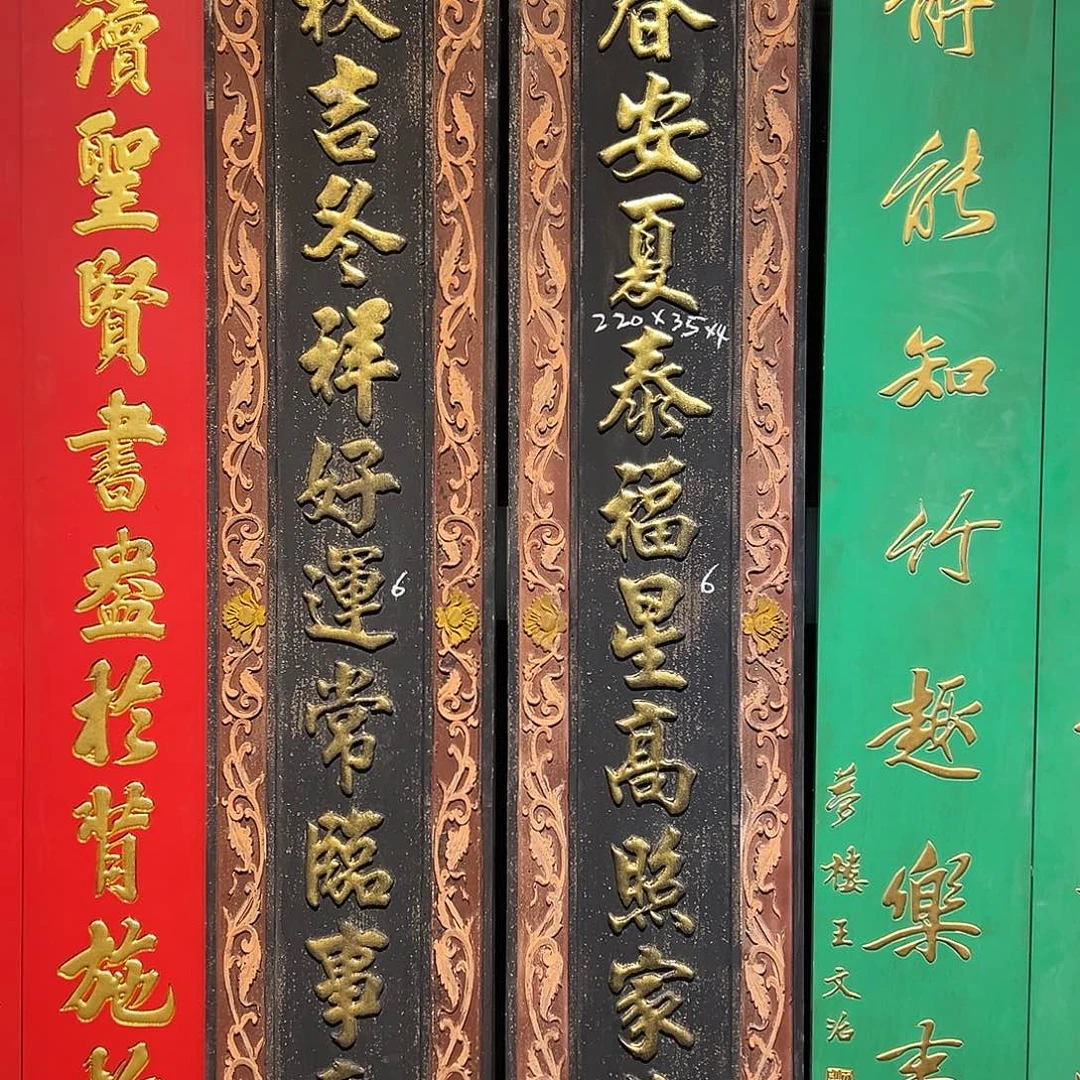 能知竹趣樂
夢樓王文治
春安夏泰福星高照家
220×35×4
6
秋吉冬祥好運常臨事
6
讀聖賢書盎於背施